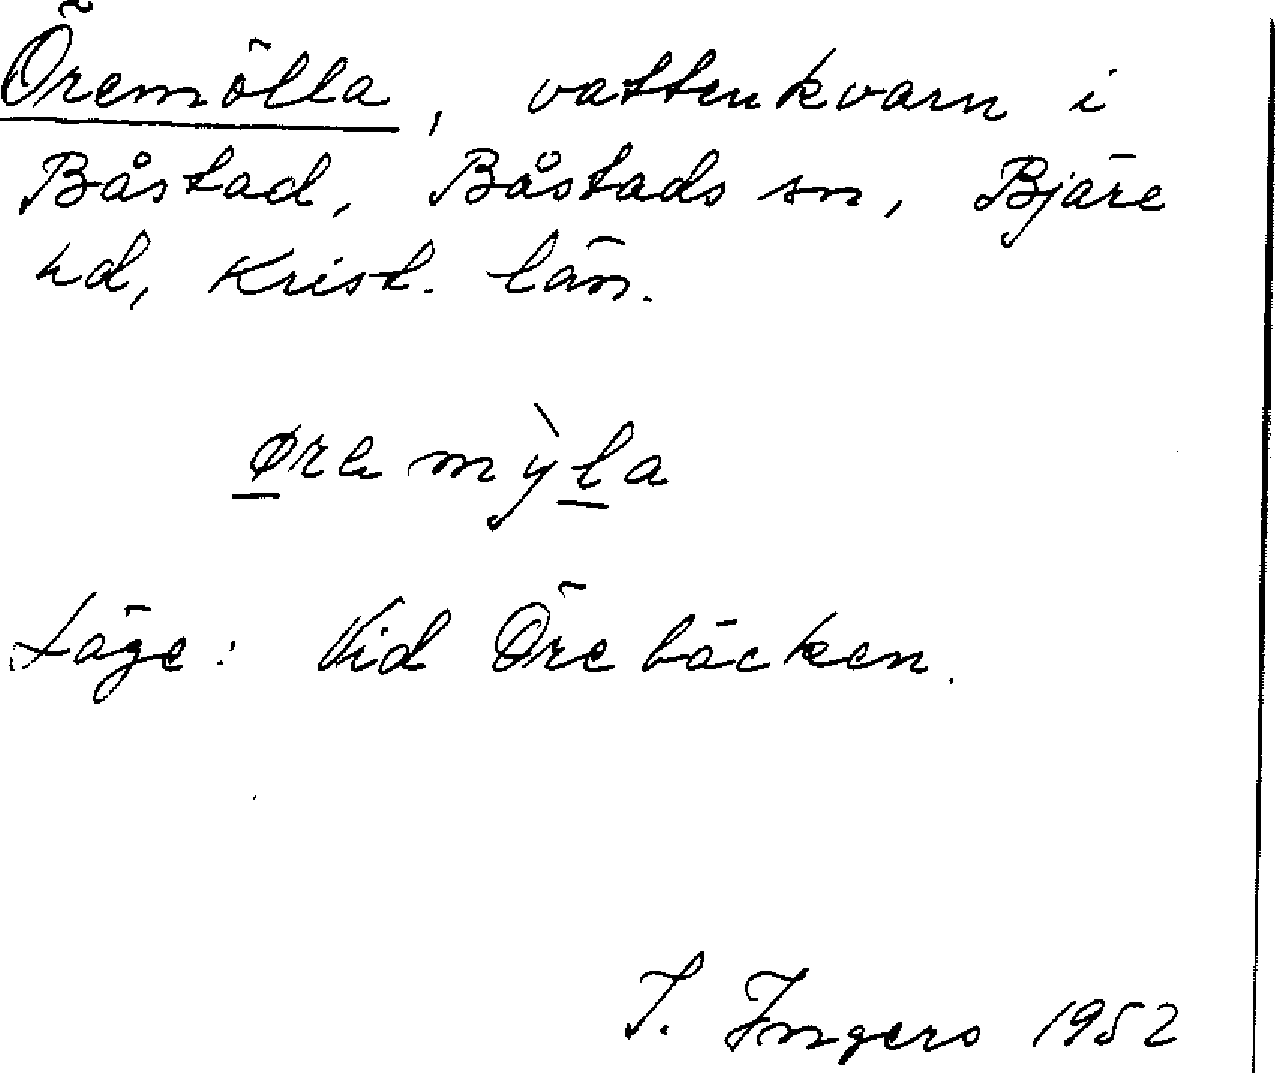 Öremölla, vattenkvarn i
Båstad, Båstads sn, Bjäre
hd, Krist. län.
øremỳla
Läge: Vid Örebäcken.
I. Ingers 1952